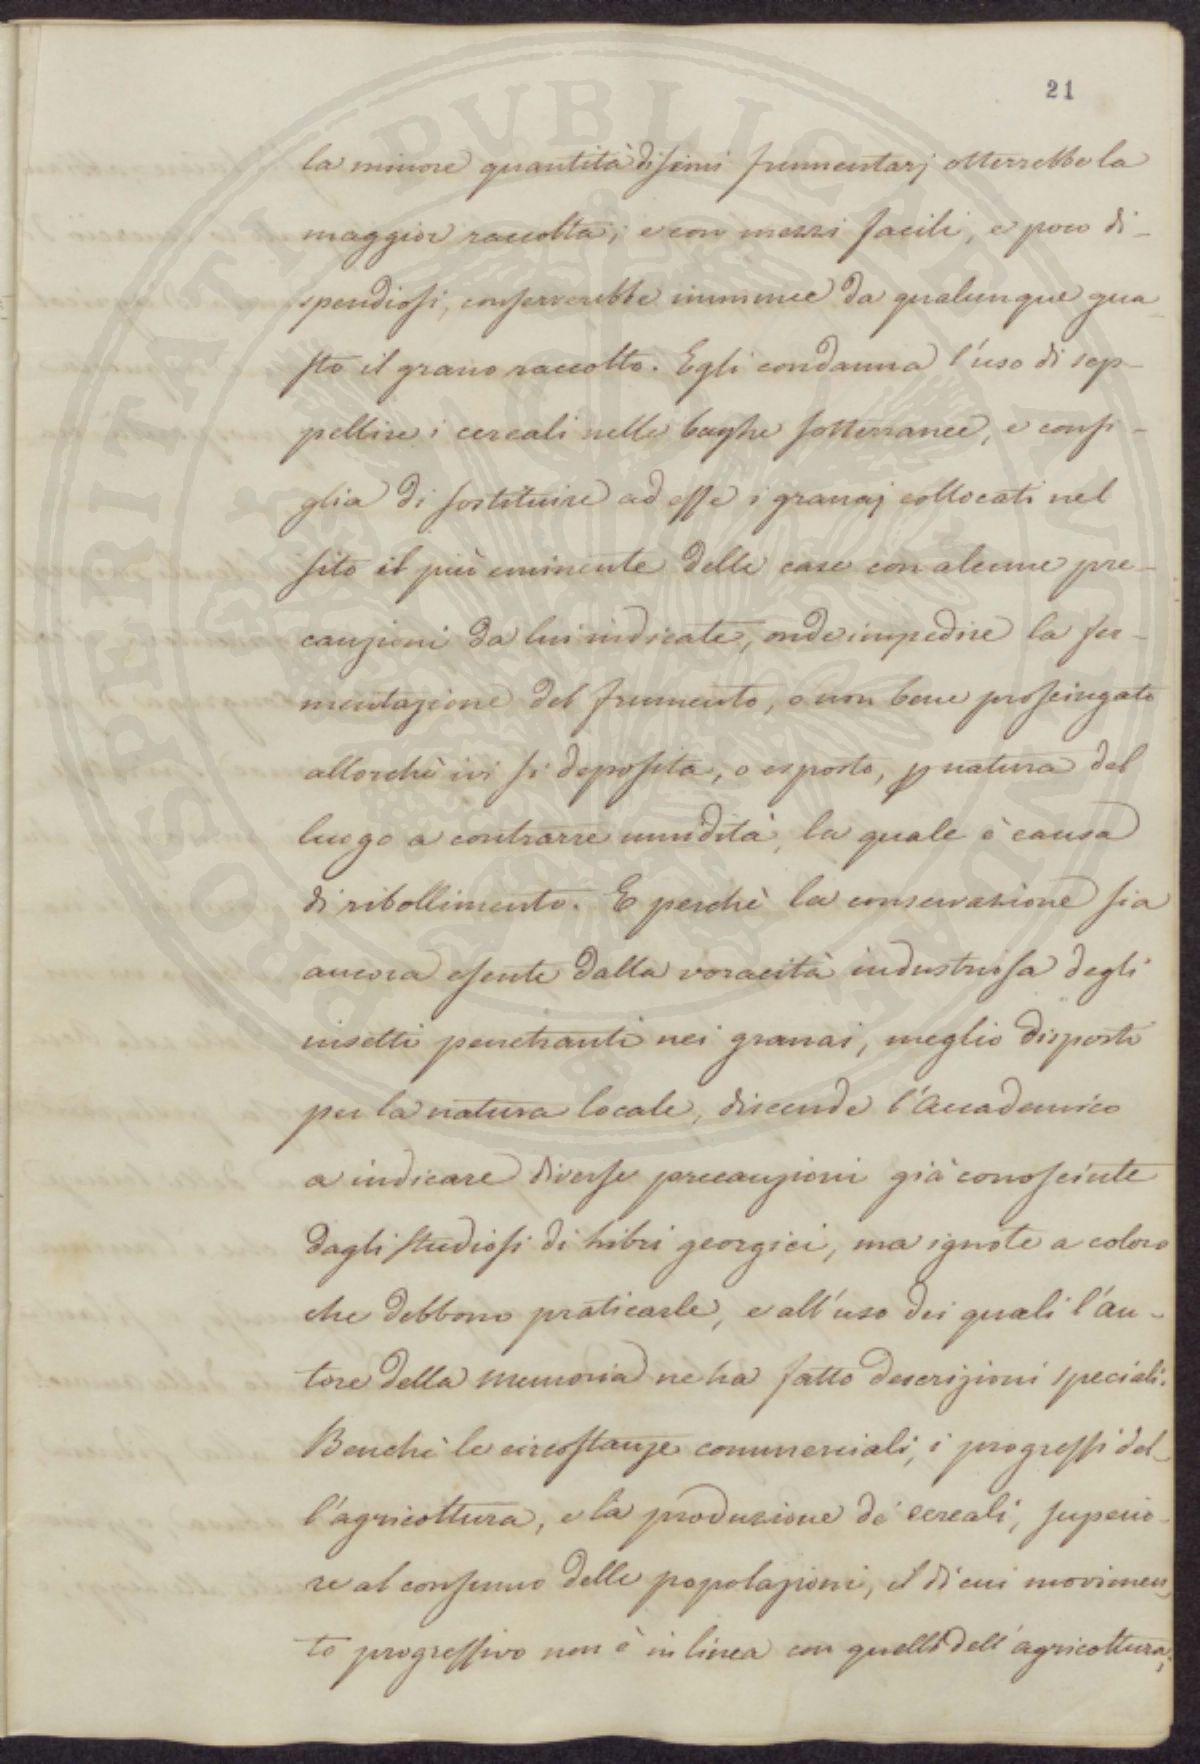 21
la minore quantità di semi frumentarj otterrebbe la
maggior raccolta; e con mezzi facili, e poco di-
spendiosi, conserverebbe immune da qualunque gua-
sto il grano raccolto. Egli condanna l'uso di sep-
pellire i cereali nelle bughe sotterranee, e consi-
glia di sostituire ad esse i granaj collocati nel
sito il più eminente delle case con alcune pre-
cauzioni da lui indicate, onde impedire la fer-
mentazione del frumento, o non bene prosciugato
allorchè ivi si deposita, o esposto, p natura del
luogo a contrarre umidità, la quale è causa
di ribollimento. E perchè la conservazione sia
ancora esente dalla voracità industriosa degli
insetti penetranti nei granai, meglio disposti
per la natura locale, discende l'Accademico
a indicare diverse precauzioni già conosciute
dagli studiosi di libri georgici, ma ignote a coloro
che debbono praticarle, e all'uso dei quali l'au-
tore della memoria ne ha fatto descrizioni speciali.
Benchè le circostanze commerciali, i progressi del-
l'agricoltura, e la produzione de' cereali, superio-
re al consumo delle popolazioni, il di cui movimen-
to progressivo non è in linea con quello dell'agricoltura,
PROSPERITATI PUBLICAE AUGENDAE